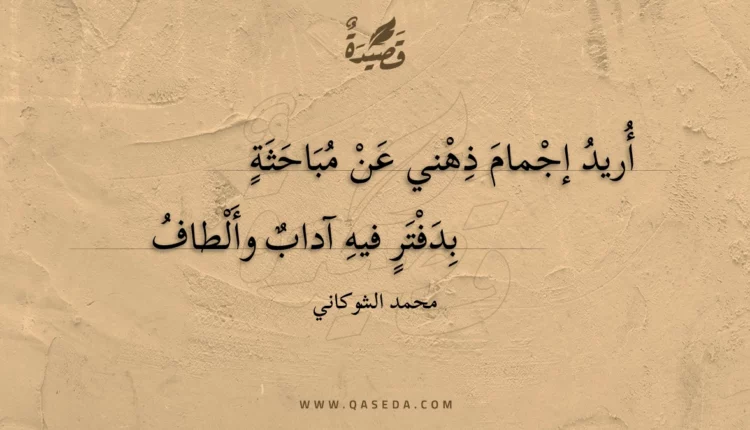 قَصِيدَةٌ
أُريدُ إجْمامَ ذِهْني عَنْ مُبَاحَثَةٍ
بِدَفْتَرٍ فيهِ آدابٌ وأَلْطافُ
محمد الشوكاني
WWW.QASEDA.COM